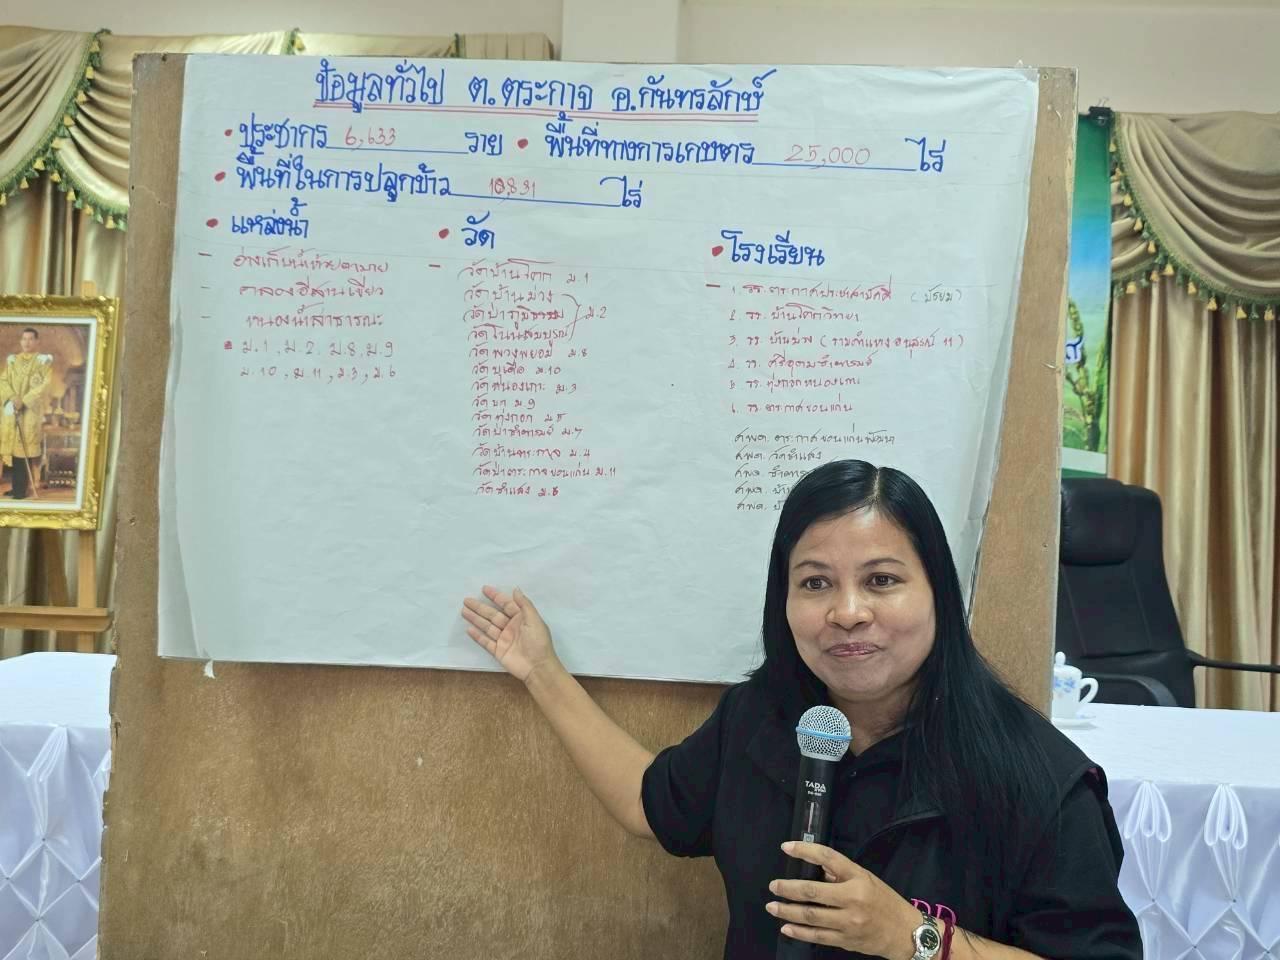 ข้อมูลทั่วไป ต.ตระกาจ อ.กันทรลักษ์
• ประชากร 6,633 ราย • พื้นที่ทางการเกษตร 25,000 ไร่
• พื้นที่ในการปลูกข้าว 10,831 ไร่
• แหล่งน้ำ
- อ่างเก็บน้ำห้วยตามาย
- คลองอีสานเขียว
- หนองน้ำสาธารณะ
ม.1, ม.2, ม.8, ม.9
ม.10, ม.11, ม.3, ม.6
• วัด
- วัดบ้านโศก ม.1
วัดบ้านม่วง
วัดป่าภูมิธรรม ม.2
วัดโนนสมบูรณ์
วัดพวงพยอม ม.8
ม.10
วัดหนองเกาะ ม.3
ม.9
วัดทุ่งกอก ม.5
ม.7
วัดบ้านตระกาจ ม.4
วัดป่าตระกาจขอนแก่น ม.11
วัดซำแสง ม.6
• โรงเรียน
- 1. รร. ตระกาศประชาสามัคคี (มัธยม)
2. รร. บ้านโศกวิทยา
3. รร. บ้านม่วง (รามคำแหงอนุสรณ์ 11)
4. รร.
5. รร. ทุ่งกอกหนองเกาะ
6. รร. ตระกาศขอนแก่น
ศพด. ตระกาศขอนแก่นพัฒนา
ศพด. วัดซำแสง
ศพด.
ศพด.
ศพด.
TADA